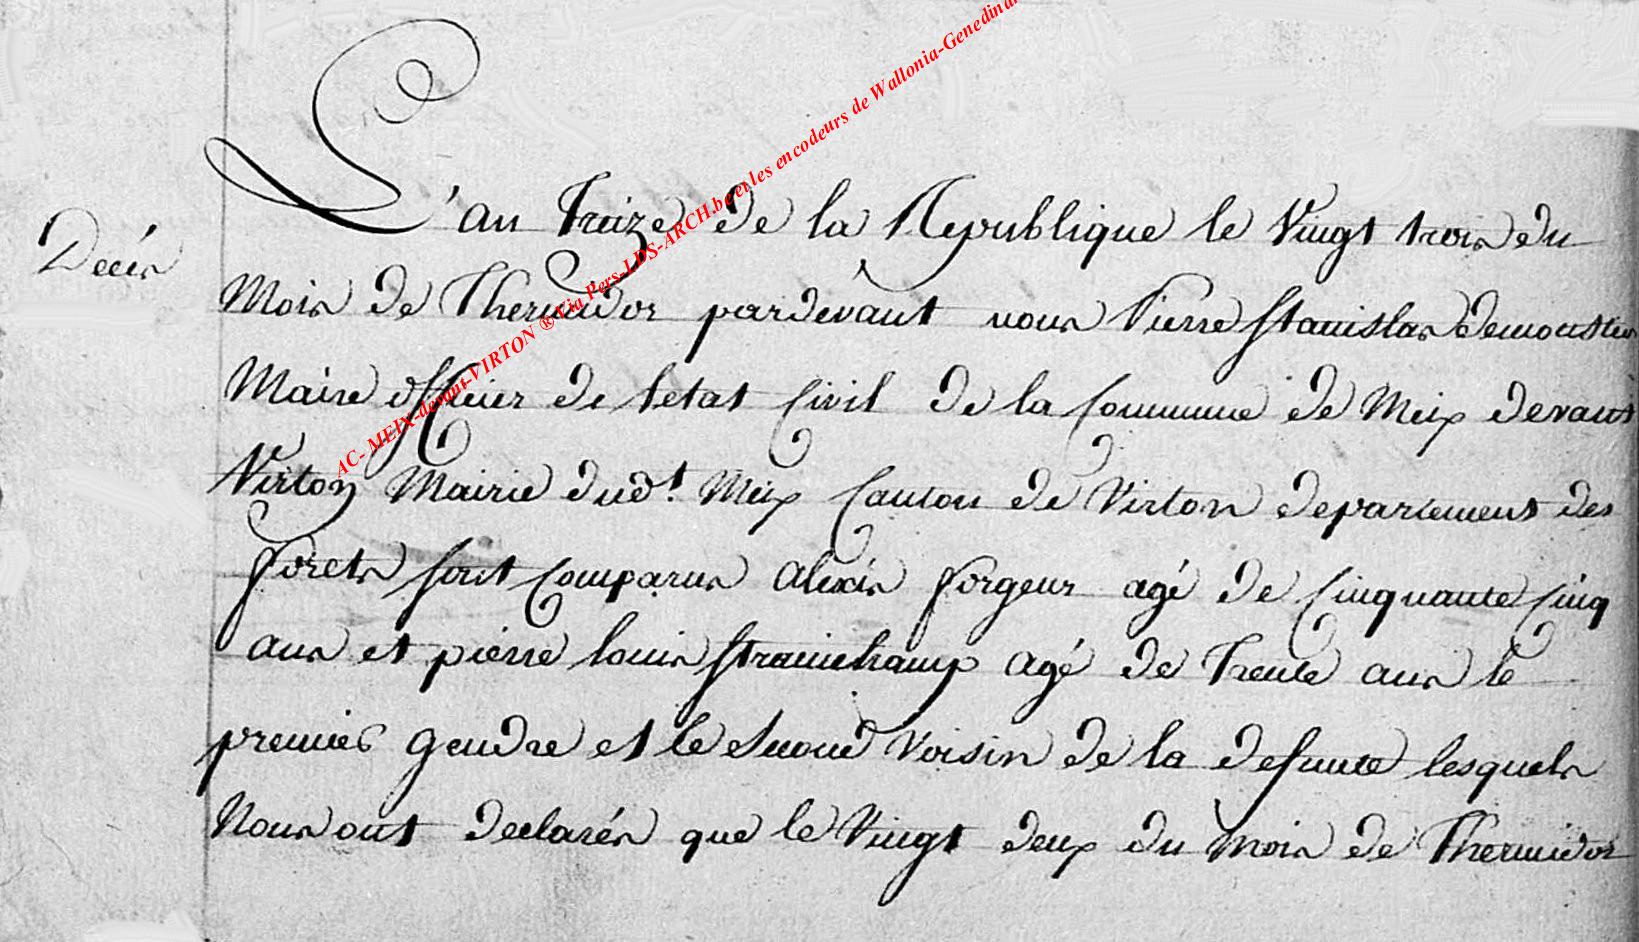 L'an Treize de la Republique le Vingt trois du
Decés
Mois de Thermidor pardevant nous Pierre Stanislas demoustier
Maire officier de letat Civil de la Commune de Meix devant
Virton Mairie dudt. Meix Canton de Virton departement des
forets sont comparus alexis forgeur agé de Cinquante Cinq
ans et pierre louis Strainchamp agé de Trente ans le
premier gendre et le second Voisin de la defunte lesquels
Nous ont declarés que le Vingt deux du mois de Thermidor
AC- MEIX-devant-VIRTON ® Via Pers-LDS-ARCH.be et les encodeurs de Wallonia-Genedinan